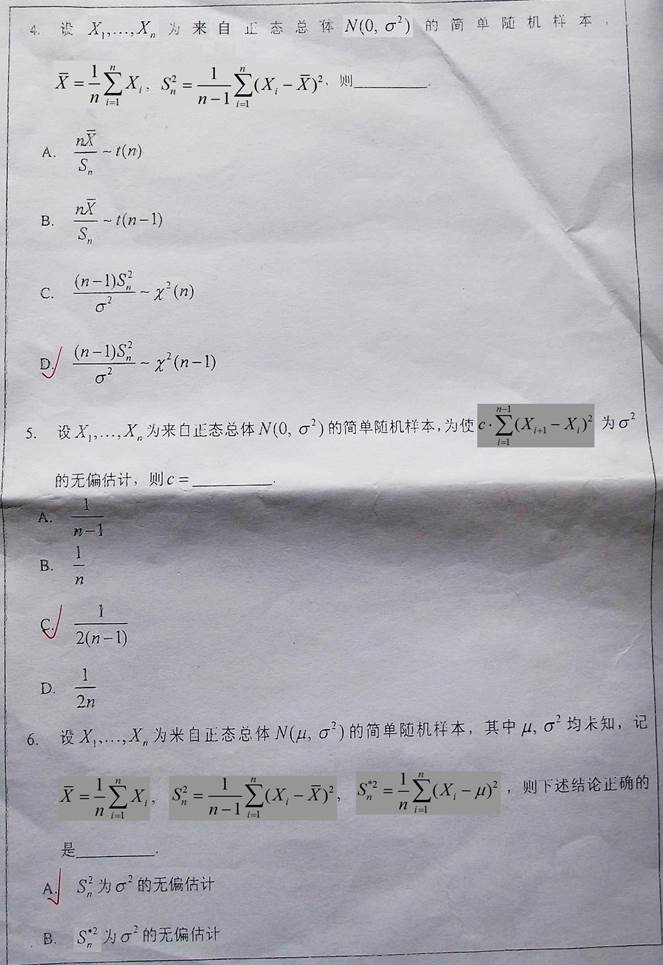 4. 设 X₁,…,Xₙ 为来自正态总体 N(0, σ²) 的简单随机样本,
X̄ = 1/n ∑ᵢ₌₁ⁿ Xᵢ, Sₙ² = 1/(n−1) ∑ᵢ₌₁ⁿ (Xᵢ − X̄)², 则________.
A. nX̄/Sₙ ~ t(n)
B. nX̄/Sₙ ~ t(n−1)
C. (n−1)Sₙ²/σ² ~ χ²(n)
D. (n−1)Sₙ²/σ² ~ χ²(n−1)
5. 设 X₁,…,Xₙ 为来自正态总体 N(0, σ²) 的简单随机样本,为使 c·∑ᵢ₌₁ⁿ⁻¹ (Xᵢ₊₁ − Xᵢ)² 为 σ²
的无偏估计, 则 c = ________.
A. 1/(n−1)
B. 1/n
C. 1/(2(n−1))
D. 1/(2n)
6. 设 X₁,…,Xₙ 为来自正态总体 N(μ, σ²) 的简单随机样本, 其中 μ, σ² 均未知, 记
X̄ = 1/n ∑ᵢ₌₁ⁿ Xᵢ, Sₙ² = 1/(n−1) ∑ᵢ₌₁ⁿ (Xᵢ − X̄)², Sₙ*² = 1/n ∑ᵢ₌₁ⁿ (Xᵢ − μ)², 则下述结论正确的
是________.
A. Sₙ² 为 σ² 的无偏估计
B. Sₙ*² 为 σ² 的无偏估计